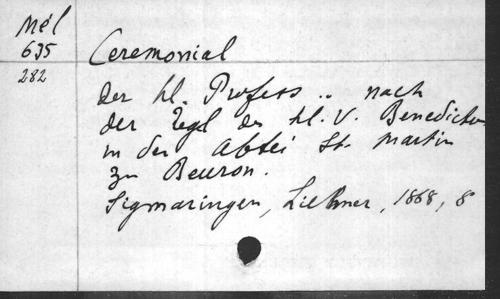 Mél
635
282
Ceremonial
der hl. Profess .. nach
der Regl des hl. V. Benedictus
in der Abtei St. Martin
zu Beuron.
Sigmaringen, Liehner, 1868, 8